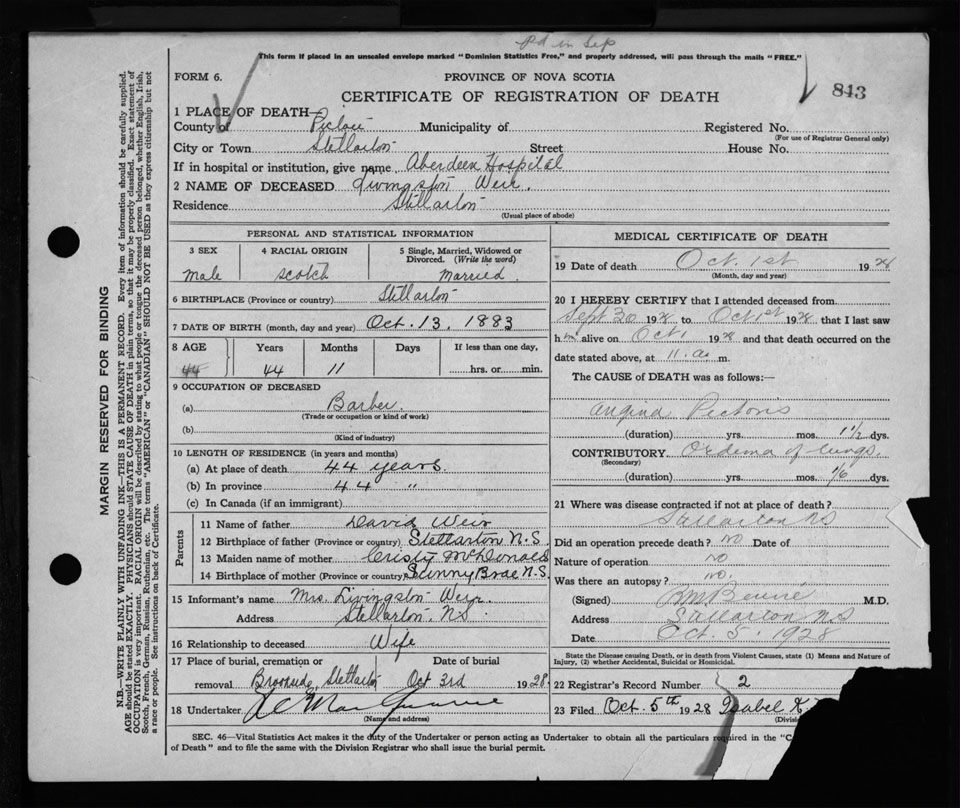 pd in Sep
This form if placed in an unsealed envelope marked "Dominion Statistics Free," and properly addressed, will pass through the mails "FREE."
FORM 6.
PROVINCE OF NOVA SCOTIA
CERTIFICATE OF REGISTRATION OF DEATH
843
1 PLACE OF DEATH—
County of Pictou Municipality of Registered No.
(For use of Registrar General only)
City or Town Stellarton Street House No.
If in hospital or institution, give name Aberdeen Hospital
2 NAME OF DECEASED Livingston Weir.
Residence Stellarton
(Usual place of abode)
PERSONAL AND STATISTICAL INFORMATION
3 SEX 4 RACIAL ORIGIN 5 Single, Married, Widowed or Divorced. (Write the word)
Male Scotch Married
6 BIRTHPLACE (Province or country) Stellarton
7 DATE OF BIRTH (month, day and year) Oct. 13, 1883
8 AGE Years Months Days If less than one day,
44 44 11 hrs. or min.
9 OCCUPATION OF DECEASED
(a) Barber
(Trade or occupation or kind of work)
(b)
(Kind of industry)
10 LENGTH OF RESIDENCE (in years and months)
(a) At place of death 44 years.
(b) In province 44 "
(c) In Canada (if an immigrant)
Parents
11 Name of father David Weir
12 Birthplace of father (Province or country) Stellarton N.S.
13 Maiden name of mother Cristy McDonald
14 Birthplace of mother (Province or country) Sunny Brae N.S
15 Informant's name Mrs. Livingston Weir
Address Stellarton. N.S
16 Relationship to deceased Wife
17 Place of burial, cremation or removal Brookside Stellarton Date of burial Oct 3rd 1928
18 Undertaker
(Name and address)
MEDICAL CERTIFICATE OF DEATH
19 Date of death Oct. 1st 1928
(Month, day and year)
20 I HEREBY CERTIFY that I attended deceased from
Sept 30 1928 to Oct 1st 1928 that I last saw
him alive on Oct 1 1928 and that death occurred on the
date stated above, at 11. a. m.
The CAUSE of DEATH was as follows:
Angina Pectoris
(duration) yrs. mos. 1 1/2 dys.
CONTRIBUTORY Oedema of lungs.
(Secondary)
(duration) yrs. mos. 1/6 dys.
21 Where was disease contracted if not at place of death?
Stellarton NS
Did an operation precede death? NO Date of
Nature of operation NO
Was there an autopsy? NO.
(Signed) M.D.
Address Stellarton N.S
Date Oct. 5. 1928
State the Disease causing Death, or in death from Violent Causes, state (1) Means and Nature of Injury, (2) whether Accidental, Suicidal or Homicidal.
22 Registrar's Record Number 2
23 Filed Oct. 5th 1928 Isabel
(Divisi
SEC. 46—Vital Statistics Act makes it the duty of the Undertaker or person acting as Undertaker to obtain all the particulars required in the "C
of Death" and to file the same with the Division Registrar who shall issue the burial permit.
MARGIN RESERVED FOR BINDING
N.B.—WRITE PLAINLY WITH UNFADING INK—THIS IS A PERMANENT RECORD. Every item of information should be carefully supplied.
AGE should be stated EXACTLY. PHYSICIANS should STATE CAUSE OF DEATH in plain terms, so that it may be properly classified. Exact statement of
OCCUPATION is very important. RACIAL ORIGIN will be described by stating to what people or tongue the deceased person belonged, whether English, Irish,
Scotch, French, German, Russian, Ruthenian, etc. The terms "AMERICAN" or "CANADIAN" SHOULD NOT BE USED as they express citizenship but not
a race or people. See instructions on back of Certificate.